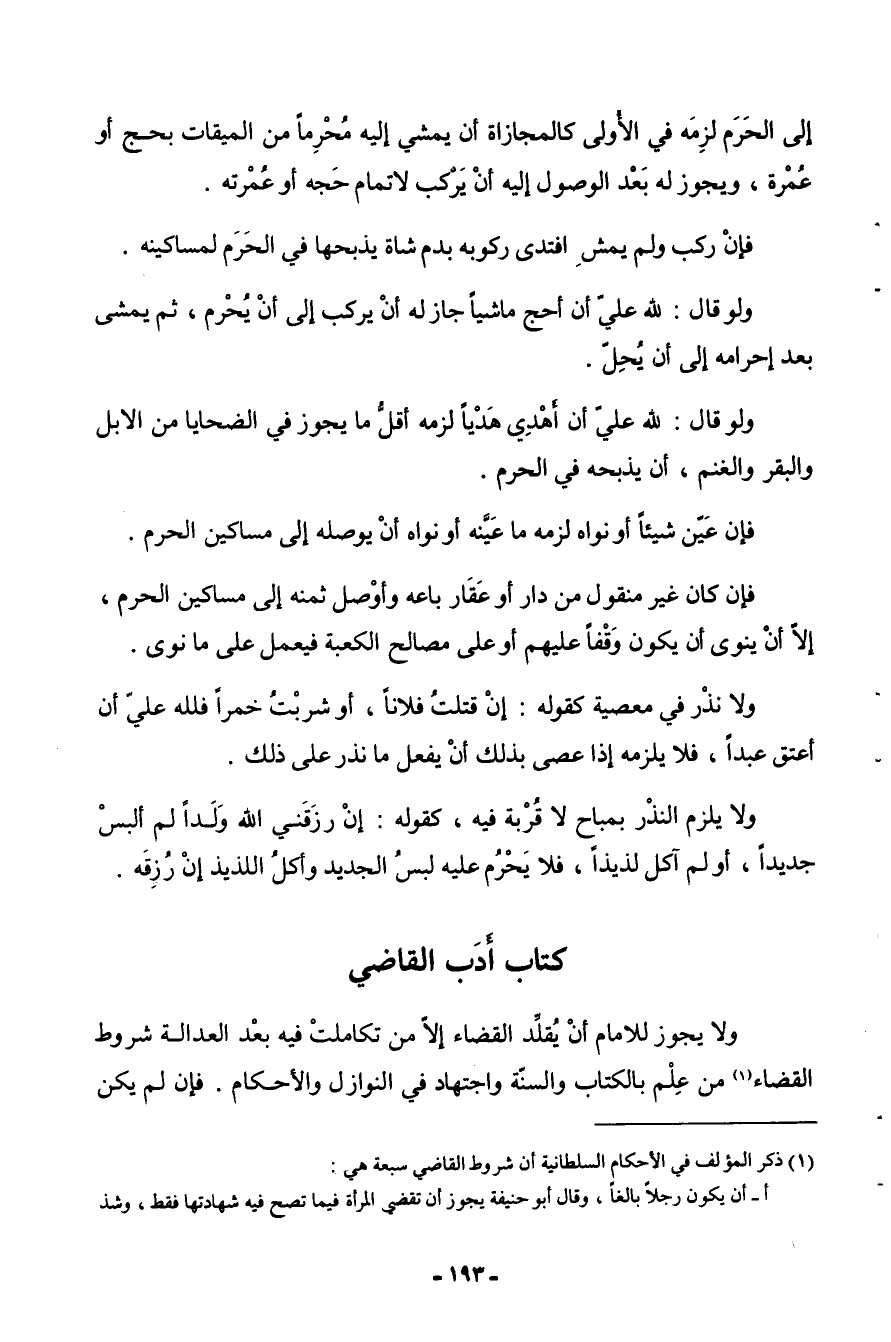 إلى الحَرَم لزِمَه في الأُولى كالمجازاة أن يمشي إليه مُحْرِماً من الميقات بحـج أو
عُمْرة ، ويجوز له بَعْد الوصول إليه أنْ يَرْكب لاتمام حَجه أو عُمْرته .
فإنْ ركب ولم يمشِ افتدى ركوبه بدم شاة يذبحها في الحَرَم لمساكينه .
ولو قال : لله عليّ أن أحج ماشياً جاز له أنْ يركب إلى أنْ يُحْرم ، ثم يمشى
بعد إحرامه إلى أن يُحِلّ .
ولو قال : لله عليّ أن أَهْدِي هَدْياً لزمه أقلُّ ما يجوز في الضحايا من الابل
والبقر والغنم ، أن يذبحه في الحرم .
فإن عَيّن شيئاً أو نواه لزمه ما عَيَّنه أو نواه أنْ يوصله إلى مساكين الحرم .
فإن كان غير منقول من دار أو عَقَار باعه وأوْصل ثمنه إلى مساكين الحرم ،
إلاّ أنْ ينوى أن يكون وَقْفاً عليهم أو على مصالح الكعبة فيعمل على ما نوى .
ولا نذْر في معصية كقوله : إنْ قتلتُ فلاناً ، أو شربْتُ خمراً فلله عليّ أن
أعتق عبداً ، فلا يلزمه إذا عصى بذلك أنْ يفعل ما نذر على ذلك .
ولا يلزم النذْر بمباح لا قُرْبة فيه ، كقوله : إنْ رزَقَنـي الله وَلَـداً لـم ألبسْ
جديداً ، أو لم آكل لذيذاً ، فلا يَحْرُم عليه لبسُ الجديد وأكلُ اللذيذ إنْ رُزِقَه .
كتاب أَدَب القاضي
ولا يجوز للامام أنْ يُقلِّد القضاء إلاّ من تكاملتْ فيه بعْد العدالـة شروط
القضاء(١) من عِلْم بالكتاب والسنّة واجتهاد في النوازل والأحكـام . فإن لـم يكن
(١) ذكر المؤلف في الأحكام السلطانية أن شروط القاضي سبعة هي :
أ ـ أن يكون رجلاً بالغاً ، وقال أبو حنيفة يجوز أن تقضي المرأة فيما تصح فيه شهادتها فقط ، وشذ
- ١٩٣ -